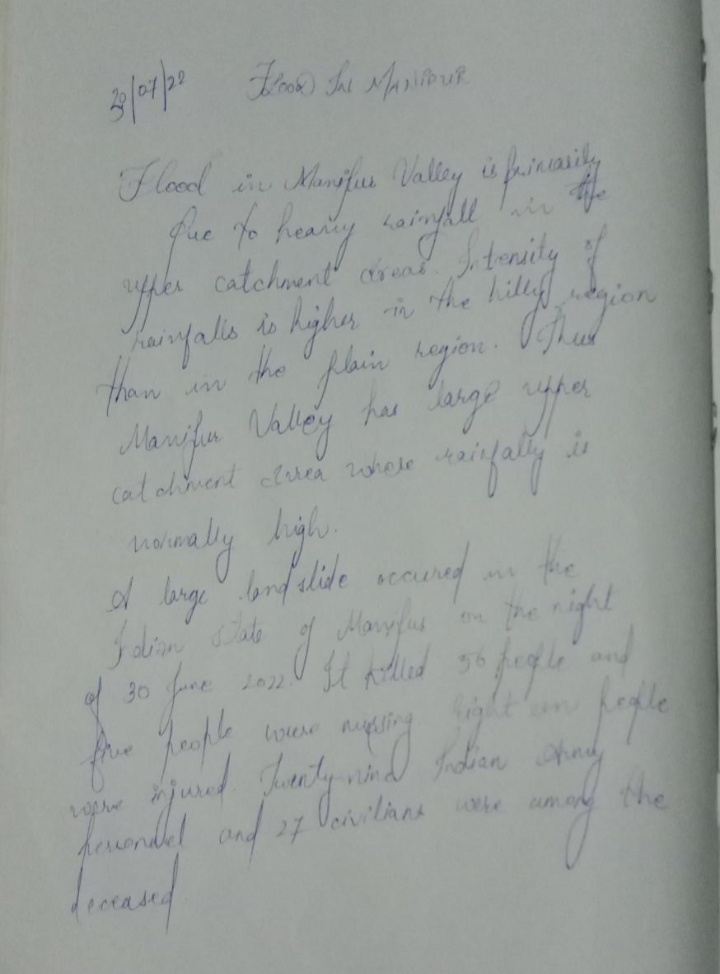 29/07/22 Flood In Manipur
Flood in Manipur Valley is primarily
Due to heavy rainfall in the
upper catchment areas. Intensity of
rainfalls is higher in the hilly region
than in the plain region. Thus
Manipur Valley has large upper
catchment Area where rainfally is
normally high.
A large landslide occured in the
Indian State of Manipur on the night
of 30 June 2022. It killed 56 people and
five people were missing Eighteen people
were injured. Twenty-nine Indian Army
personnel and 27 civilians were among the
deceased